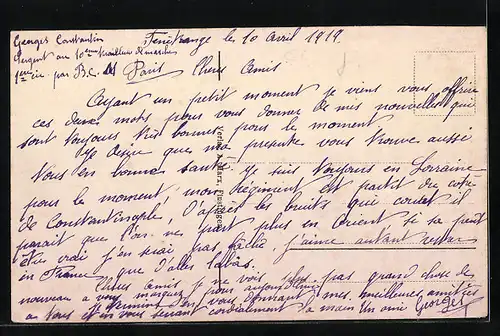 Georges Constantin
Sergent au 10ème Tirailleurs de marche
1ère Cie par B.C.M Paris
Fénétrange le 10 Avril 1919.
Chers Amis
Ayant un petit moment je viens vous offrir
ces deux mots pour vous donner de mes nouvelles qui
sont toujours très bonnes pour le moment
Je désire que ma présente vous trouve aussi
Vous en bonne santé. Je suis toujours en Lorraine
pour le moment, mon Régiment est partit du coté
de Constantinople, D'après les bruits que courait il
parait que l'on ne part plus en Orient si sa peut
être vrai j'en serai pas faché, j'aime autant rester
en France que d'aller labas.
Chers Amis je ne vois plus pas grand chose de
nouveau a vous marquer pour aujourd'hui
Je termine en vous donnant mes meilleures amitiés
a vous et en vous serrant cordialement la main Un ami Georges
Verlag A. Marx, Finstingen